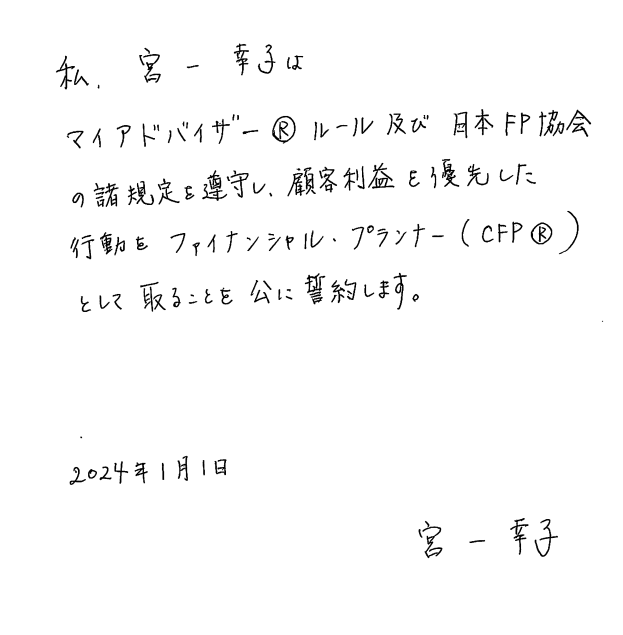 私、宮一幸子は
マイアドバイザー®ルール及び日本FP協会
の諸規定を遵守し、顧客利益を優先した
行動をファイナンシャル・プランナー(CFP®)
として取ることを公に誓約します。
2024年1月1日
宮一幸子